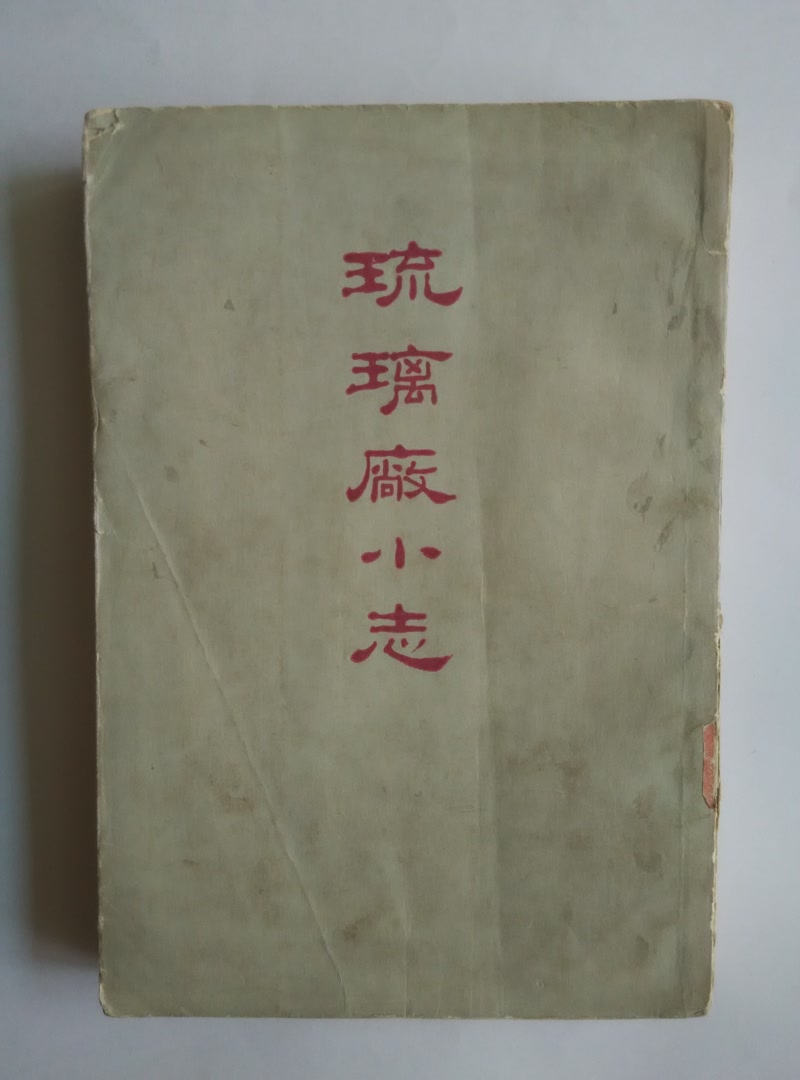 琉璃廠小志